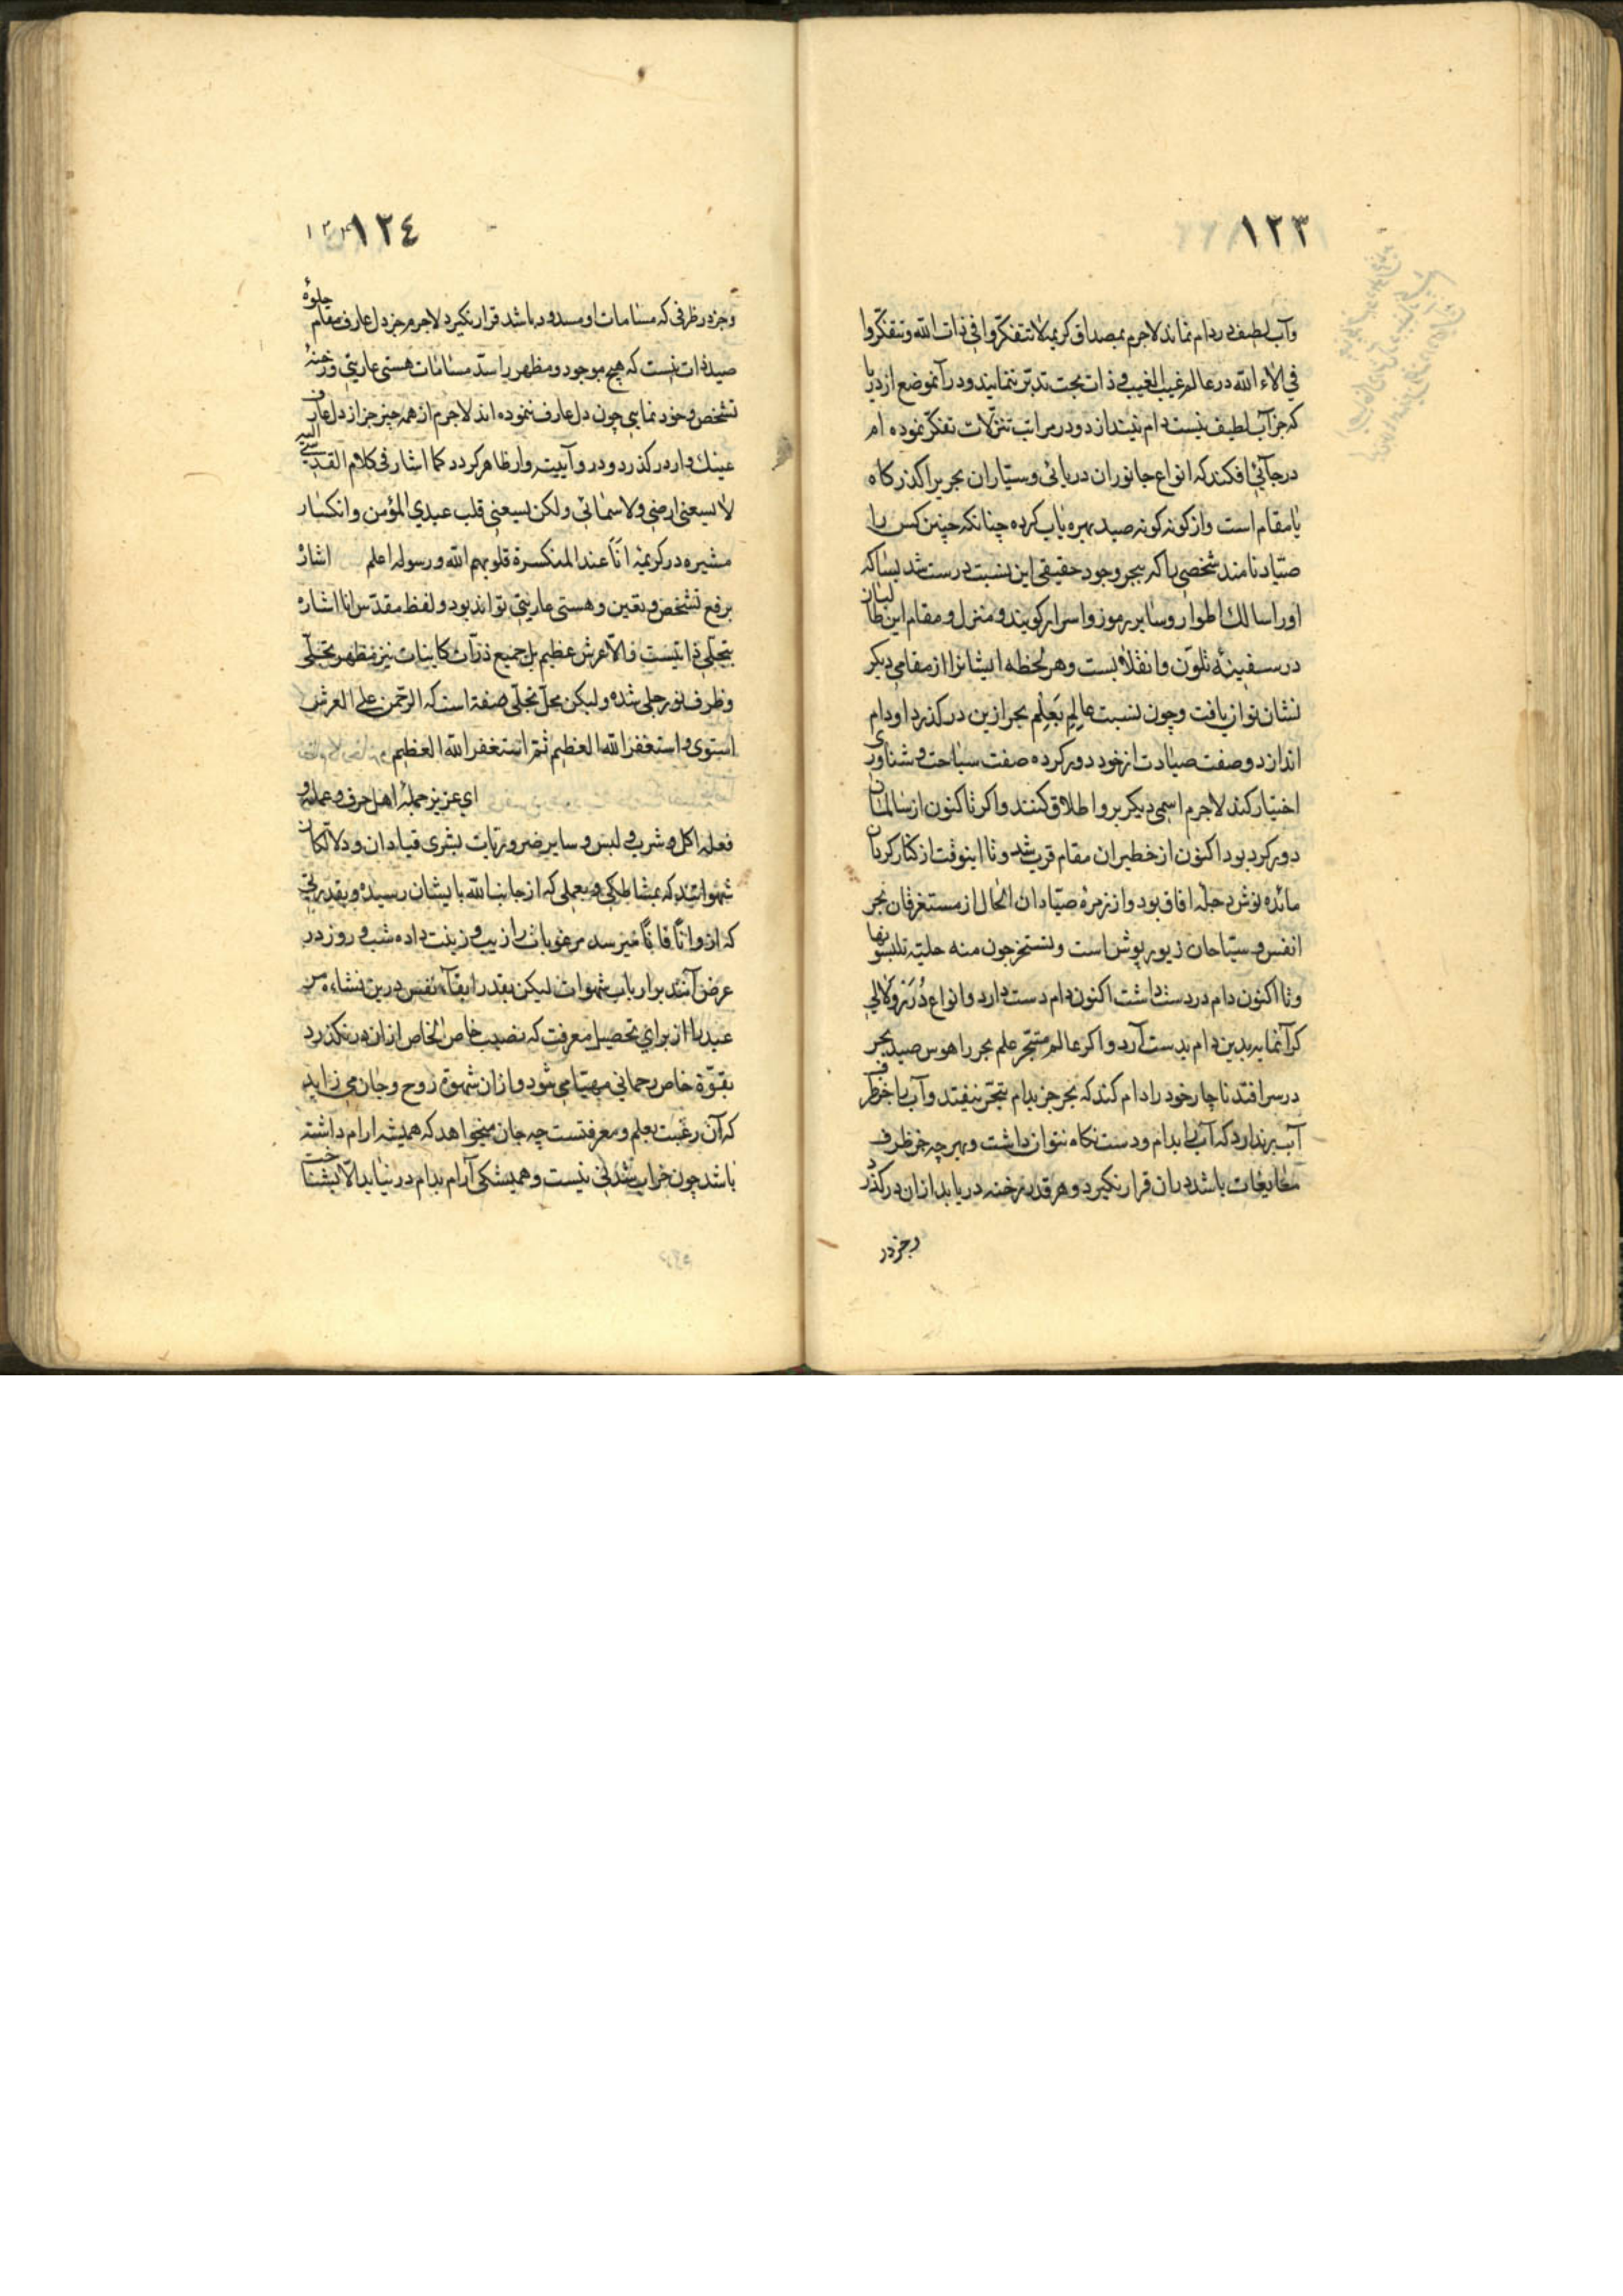 ١٢٣
وآب لطیف در دام نماند لاجرم بمصداق کریمهٔ لا تتفکّروا في ذات الله وتفکّروا
في آلاء الله در عالم غیب الغیب و ذات بحت تدبّر ننمایند و در آنموضع از دریا
که جز آب لطیف نیست دام نیندازد و در مراتب تنزّلات تفکّر نموده دام
در جائی افکند که انواع جانوران دریائی و سیّاران بحریرا گذرکاه
یا مقام است و از کونه کونه صید بهره یاب کرده چنانکه چنین کس را
صیّاد نامند شخصی را که ببحر وجود حقیقی این نسبت درست شد بسا که
او را سالك اطوار و سایر رموز و اسرار کویند و منزل و مقام این طالبان
در سفینهٔ تلوّن و انقلابست و هر لحظه ایشانرا از مقامی دیکر
نشان توان یافت و چون نسبت عالِم بَعِلم بحر ازین در کذرد او دام
اندازد و صفت صیادت از خود دور کرده صفت سباحت و شناوری
اختیار کند لاجرم اسمی دیکر برو اطلاق کنند و اکر تا کنون از سالمان
دور کرد بود اکنون از خطیران مقام قرب شد و تا اینوقت از کنار کردان
مائده نوش دجلهٔ آفاق بود و از زمرهٔ صیّادان الحال از مستغرقان بحر
انفس و سبّاحان زیور پوش است وتستخرجون منه حلیة تلبسونها
و تا اکنون دام در دست داشت اکنون دام دست دارد و انواع دُرَر و لآلی
کرانمایه بدین دام بدست آرد و اکر عالم متبحّر علم بحر را هوس صید بحر
در سر افتد ناچار خود را دام کند که بحر جز بدام تبحّر نیفتد و آب را جز ظرف
آب برندارد که آب را بدام و دست نکاه نتوان داشت و بهر چه جز ظرف
مایعات باشد در ان قرار نکیرد و هر قدر رخنه دریابد از ان در کذرد
وجز در
١٢٤
١٢٤
وجز در ظرفی که مسامات او مسدود باشد قرار نکیرد لاجرم جز دل عارف مقام جلوهٔ
صید ذات نیست که هیچ موجود و مظهر را سدّ مسامات هستی عاریتي و رخنهٔ
تشخص و خود نمایي چون دل عارف ننموده اند لاجرم از همه چیز جز از دل عارف
عینك وار در کذرد و در و آیینه وار ظاهر کردد کما اشار في کلام القدسيّ الیه
لا یسعني ارضي ولا سمائي ولکن یسعني قلب عبدي المؤمن و انکسار
مشیره در کریمهٔ انا عند المنکسرة قلوبهم الله ورسوله اعلم اشارهٔ
برفع تشخص و تعین و هستی عاریتي تواند بود و لفظ مقدّس انا اشاره
بتجلّي ذاتیست والّا عرش عظیم بل جمیع ذرّات کاینات نیز مظهر تجلّی
و ظرف نور جلی شده ولیکن محلّ تجلّی صفة است که الرّحمن علی العرش
استوی و استغفر الله العظیم ثمّ استغفر الله العظیم
اي عزیز جملهٔ اهل حرف و عمله و
فعله اکل و شرب و لبس و سایر ضروریّات بشری قیادان و دلّالکان
شهواتند که بمشاطکي و بعملی که از جانب الله بایشان رسیده و بقدرتي
که ازو آناً فآناً میرسد مرغوبات را زیب و زینت داده شب و روز در
عرض آنند بر ارباب شهوات لیکن بقدر ابقآء نفس درین نشاء مر
عبد را از برای تحصیل معرفت که نصیب خاص الخاص از ان در نکذرد
بقوّة خاص رحمانی مهیّا می شود و از ان شهوة روح و جان می زاید
که آن رغبت بعلم و معرفتست چه جان میخواهد که همیشه آرام داشته
باشد چون خراب شدنی نیست و همیشکی آرام بدام در نیاید الّا بشناخت